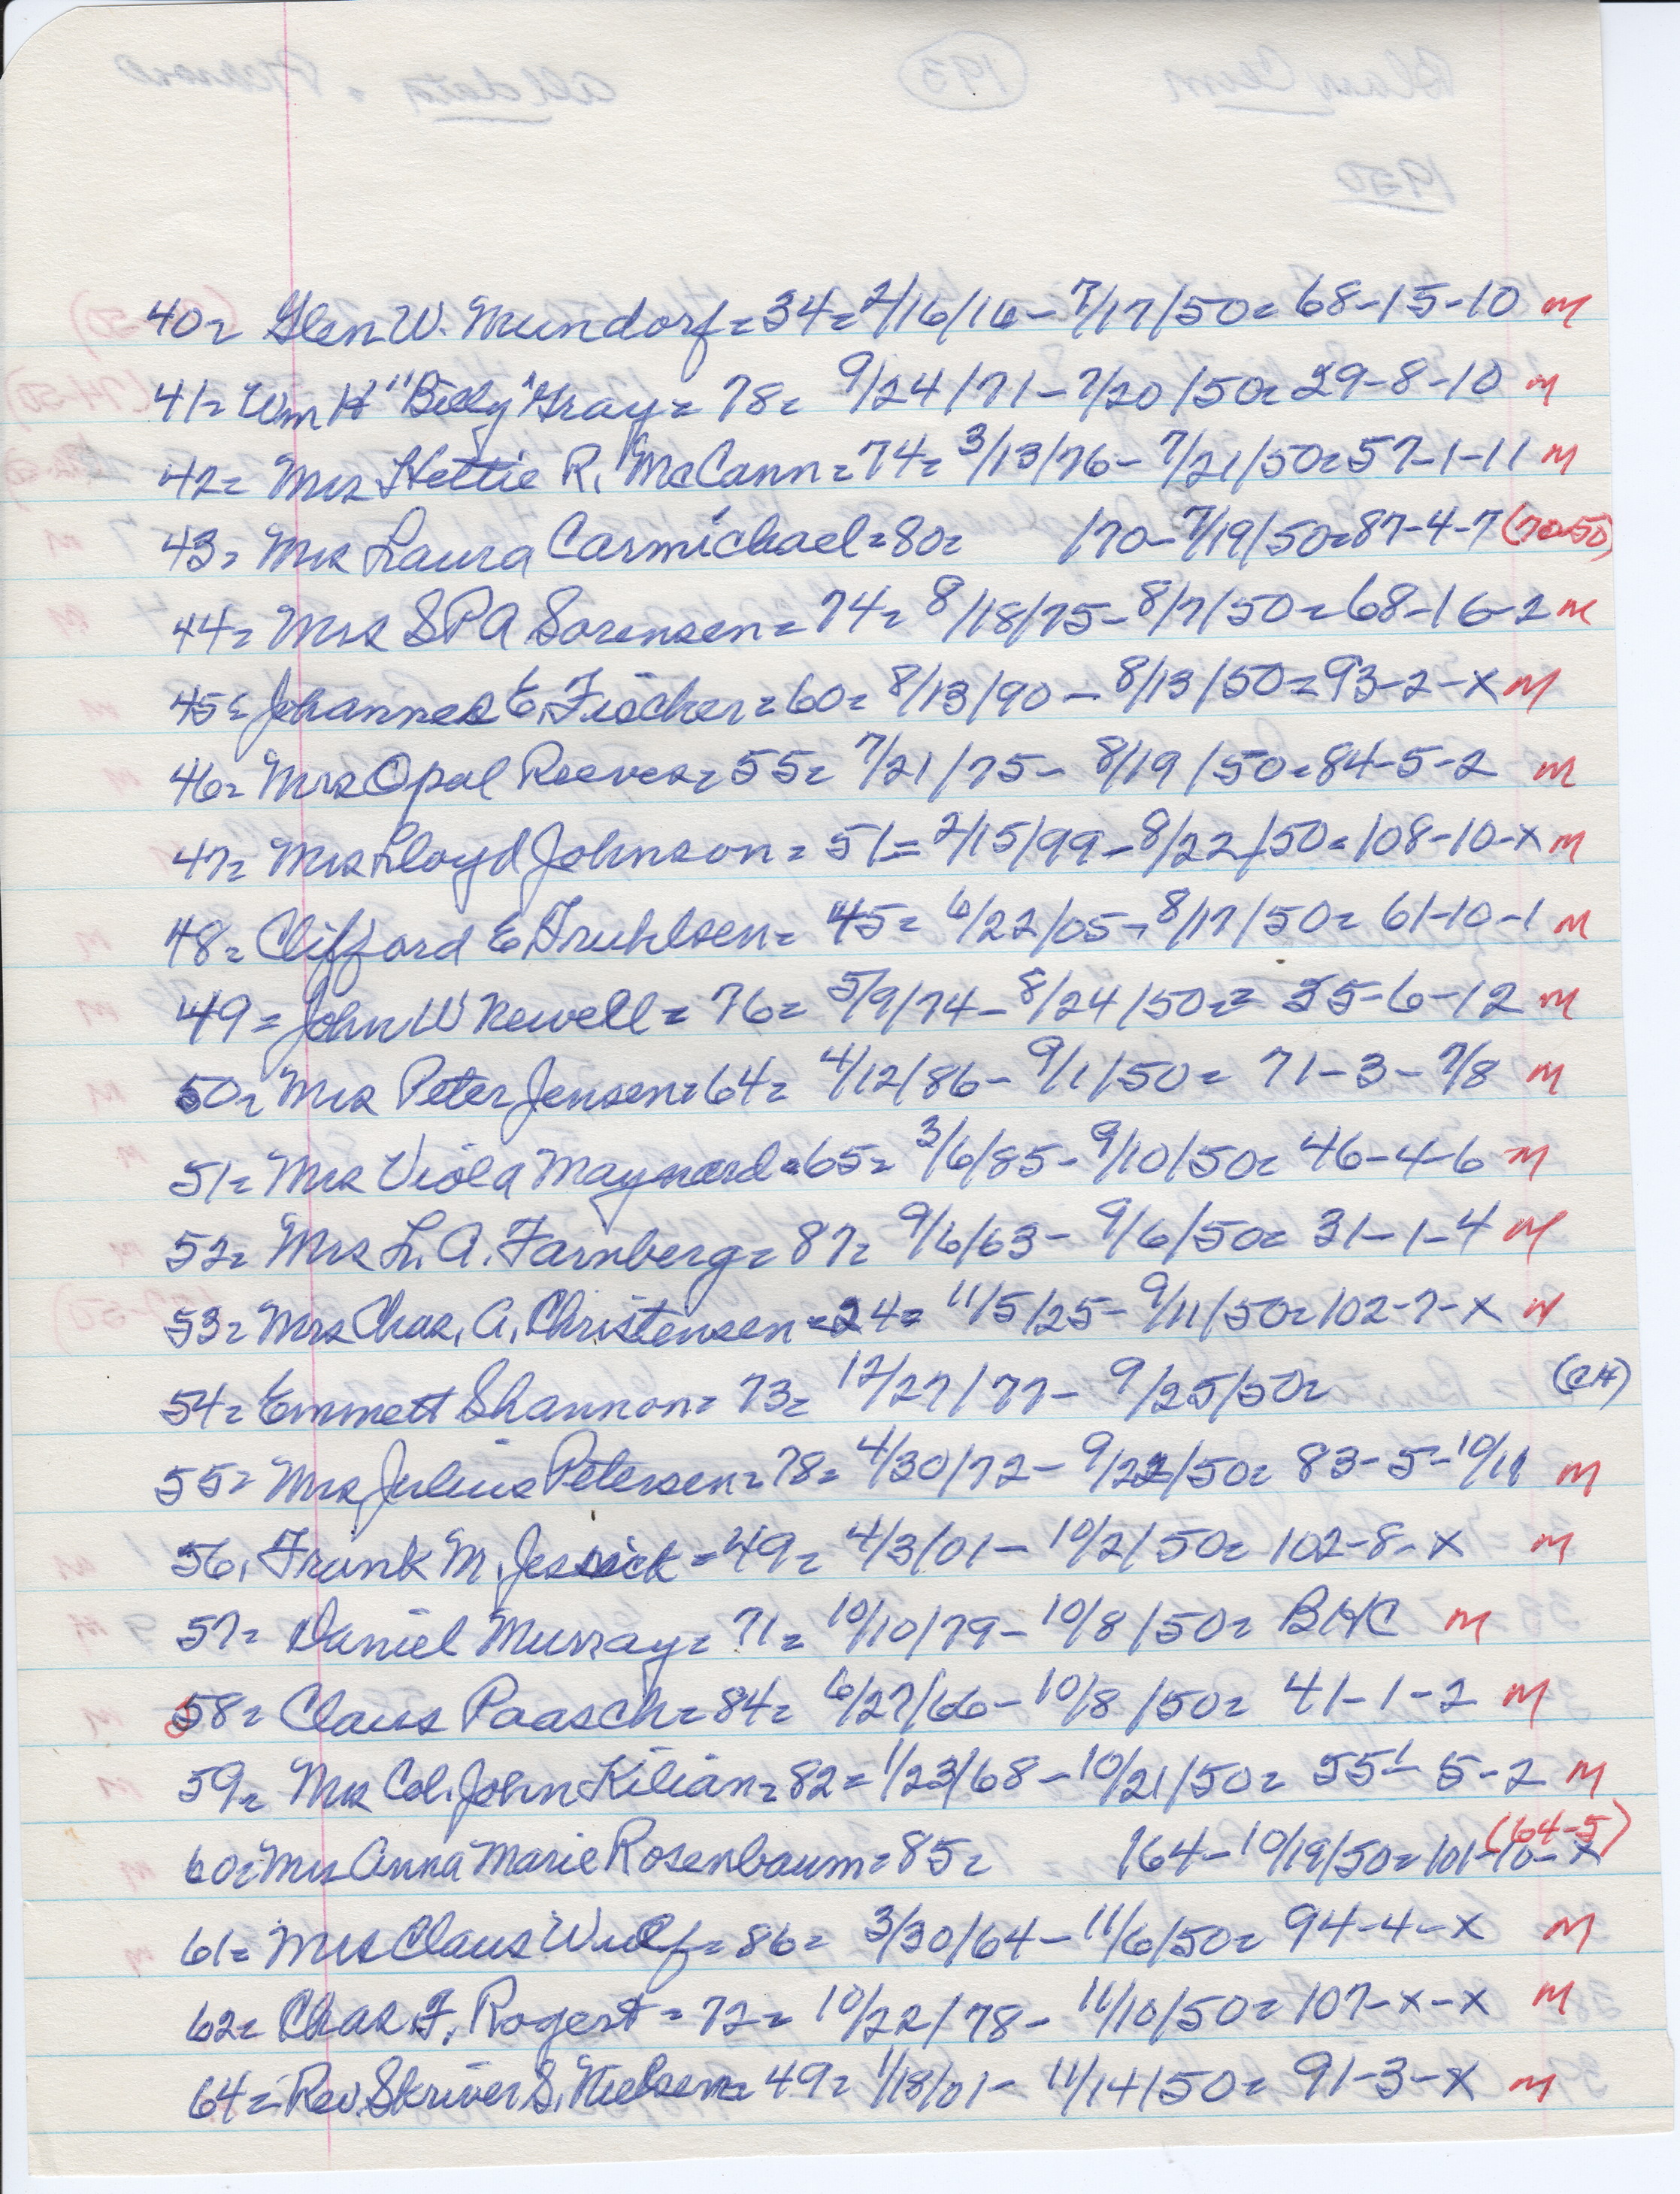 40= Glen W. Mundorf = 34 = 2/16/16 - 7/17/50 = 68-15-10 M
41= Wm H "Billy" Gray = 78 = 9/24/71 - 7/20/50 = 29-8-10 M
42= Mrs Hettie R. McCann = 74 = 3/13/76 - 7/21/50 = 57-1-11 M
43= Mrs Laura Carmichael = 80 = /70 - 7/19/50 = 87-4-7 (70-50)
44= Mrs SPA Sorensen = 74 = 8/18/75 - 8/7/50 = 68-16-2 M
45= Johannes E. Fischer = 60 = 8/13/90 - 8/13/50 = 93-2-X M
46= Mrs Opal Reeves = 55 = 7/21/75 - 8/19/50 = 84-5-2 M
47= Mrs Lloyd Johnson = 51 = 2/15/99 - 8/22/50 = 108-10-X M
48= Clifford E Fruhlsen = 45 = 6/22/05 - 8/17/50 = 61-10-1 M
49= John W Newell = 76 = 5/9/74 - 8/24/50 = = 35-6-12 M
50= Mrs Peter Jensen = 64 = 4/12/86 - 9/1/50 = 71-3-7/8 M
51= Mrs Viola Maynard = 65 = 3/6/85 - 9/10/50 = 46-4-6 M
52= Mrs L. A. Farnberg = 87 = 9/6/63 - 9/6/50 = 31-1-4 M
53= Mrs Chas. A. Christensen = 24 = 11/5/25 - 9/11/50 = 102-7-X M
54= Emmett Shannon = 73 = 12/27/77 - 9/25/50 = (CH)
55= Mrs Julius Petersen = 78 = 4/30/72 - 9/22/50 = 83-5-10/11 M
56. Frank M. Jessick = 49 = 4/3/01 - 10/2/50 = 102-8-X M
57= Daniel Murray = 71 = 10/10/79 - 10/8/50 = BHC M
58= Claus Paasch = 84 = 6/27/66 - 10/8/50 = 41-1-2 M
59= Mrs Col. John Kilian = 82 = 1/23/68 - 10/21/50 = 55 1/- 5-2 M
60= Mrs Anna Marie Rosenbaum = 85 = /64 - 10/19/50 = 101-10-X (64-5)
61= Mrs Claus Wulf = 86 = 3/30/64 - 11/6/50 = 94-4-X M
62= Chas F. Rogert = 72 = 10/22/78 - 11/10/50 = 107-X-X M
64= Rev. Skriver S. Nielsen = 49 = 1/18/01 - 11/14/50 = 91-3-X M